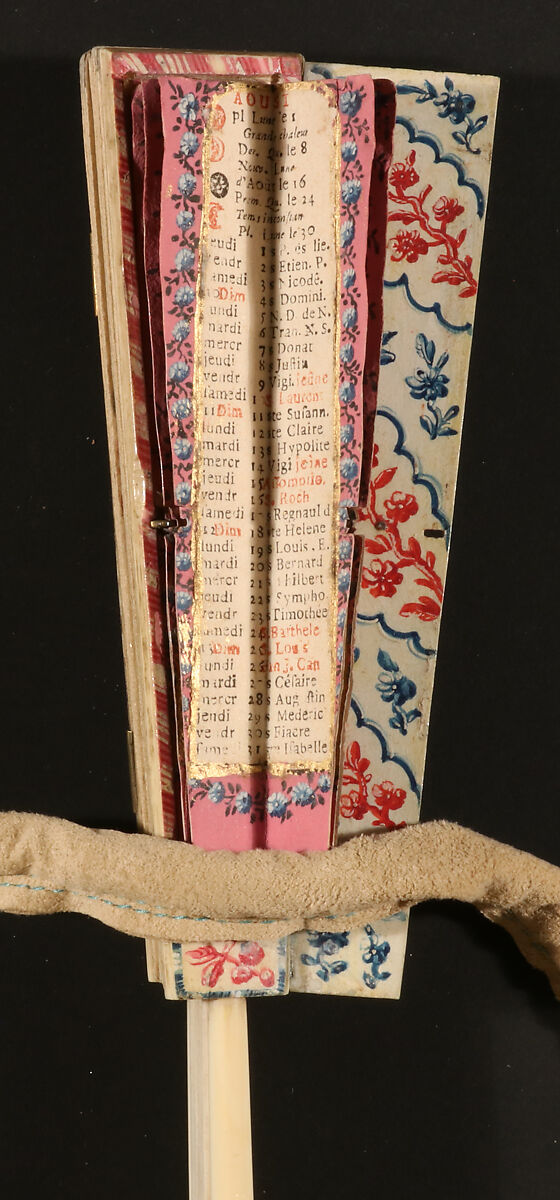 AOUST
Pl Lune le 1
Grande chaleur
Der. Qu. le 8
Nouv. Lune
d'Août le 16
Prem. Qu. le 24
Tems inconstan
Pl. Lune le 30
jeudi 1 s P. és lie.
vendr 2 s Etien. P.
samedi 3 s Nicodé.
Dim 4 s Domini.
lundi 5 N. D. de N.
mardi 6 Tran. N. S.
mercr 7 s Donat
jeudi 8 s Justin
vendr 9 Vigi. jeûne
samedi Laurent
11 Dim 11 ste Susann.
lundi 12 ste Claire
mardi 13 s Hypolite
mercr 14 Vigi jeûne
jeudi 15
vendr Roch
samedi s Regnauld
12 Dim 18 ste Helene
lundi 19 s Louis. E.
mardi 20 s Bernard
mercr 21 s
jeudi 22 s Sympho.
vendr 23 s Timothée
samedi 24 Barthele
Dim Louis
lundi
mardi s Césaire
mercr 28 s Augustin
jeudi 29 s Mederic
vendr 30 s Fiacre
samedi 31 Isabelle